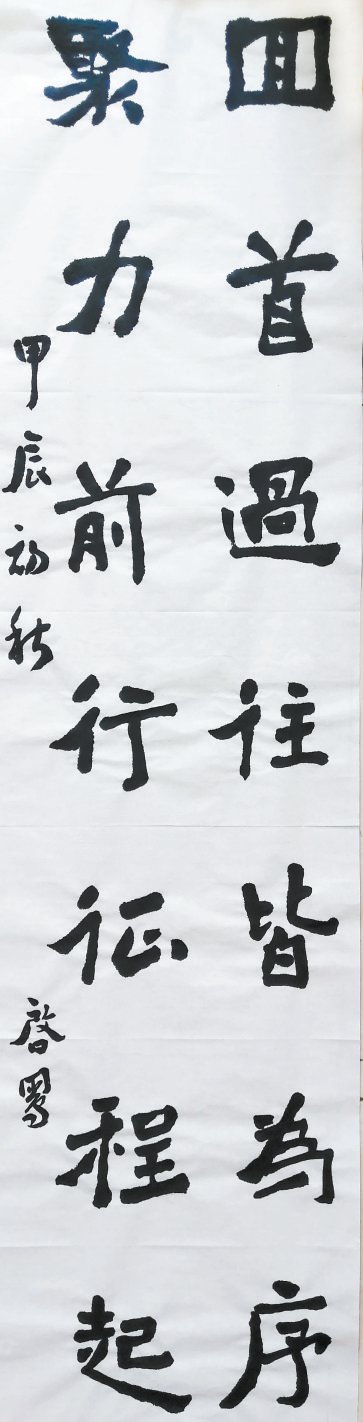 囬首過往皆為序
聚力前行征程起
甲辰初秋
啓